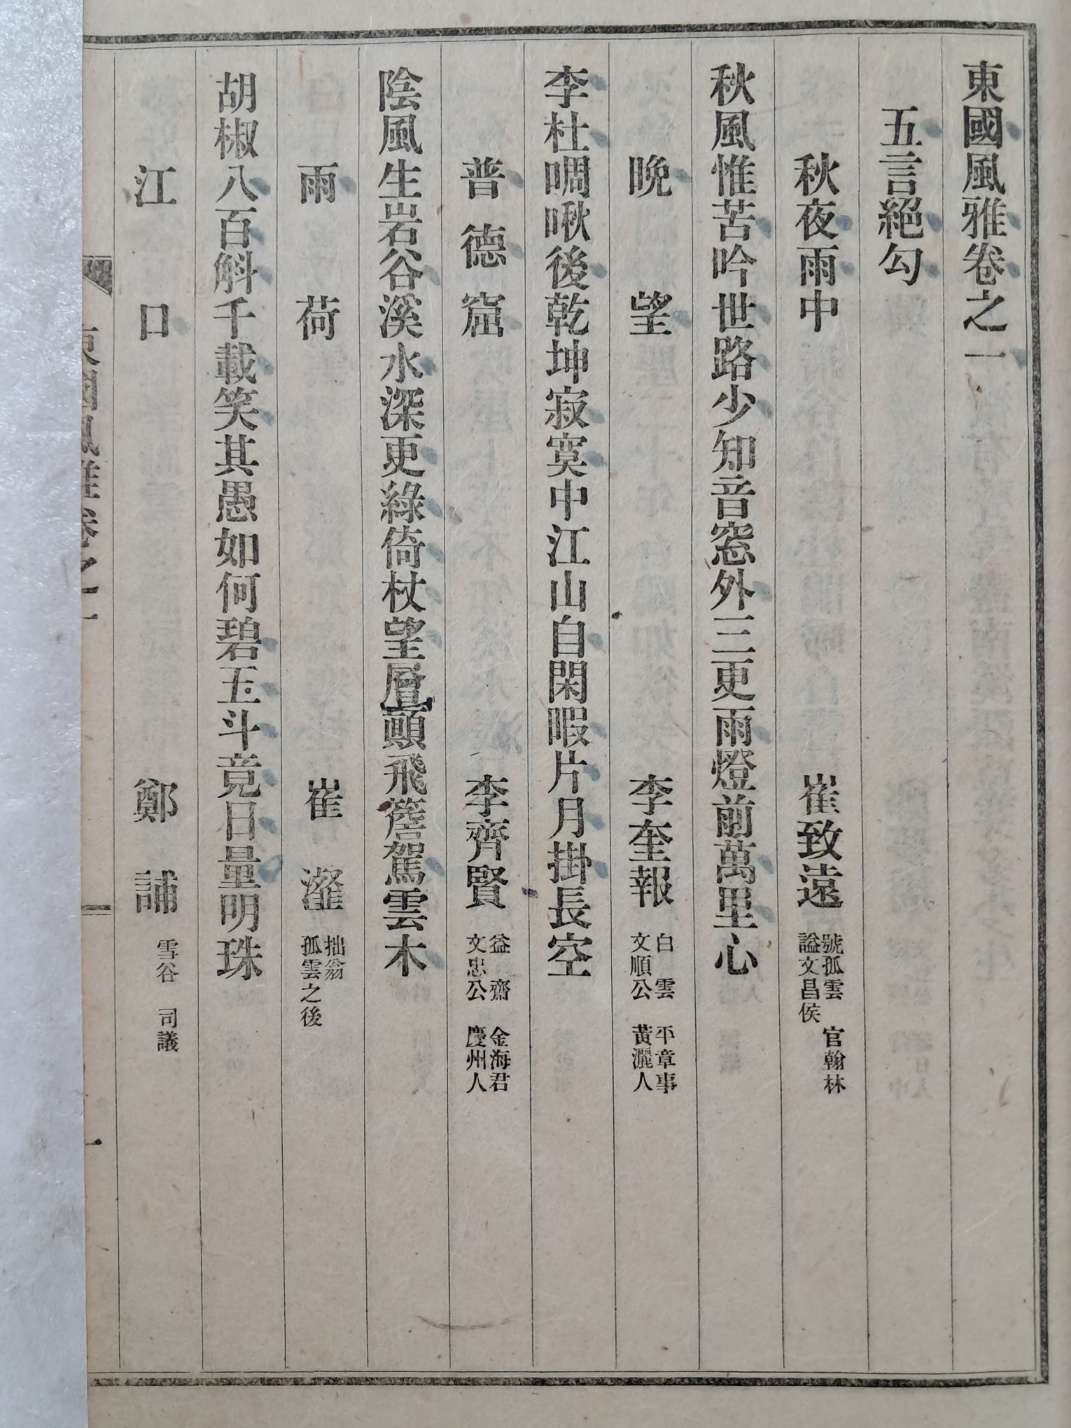 東國風雅卷之一
五言絕勾
秋夜雨中 崔致遠 號孤雲 官翰林 謚文昌侯
秋風惟苦吟世路少知音窓外三更雨燈前萬里心
晚望 李奎報 白雲 平章事 文順公 黃灑人
李杜啁啾後乾坤寂寞中江山自閑暇片月掛長空
普德窟 李齊賢 益齋 金海君 文忠公 慶州人
陰風生岩谷溪水深更綠倚杖望層顛飛簷駕雲木
雨荷 崔瀣 拙翁 孤雲之後
胡椒八百斛千載笑其愚如何碧玉斗竟日量明珠
江口 鄭誧 雪谷 司議
東國風雅卷之一 一